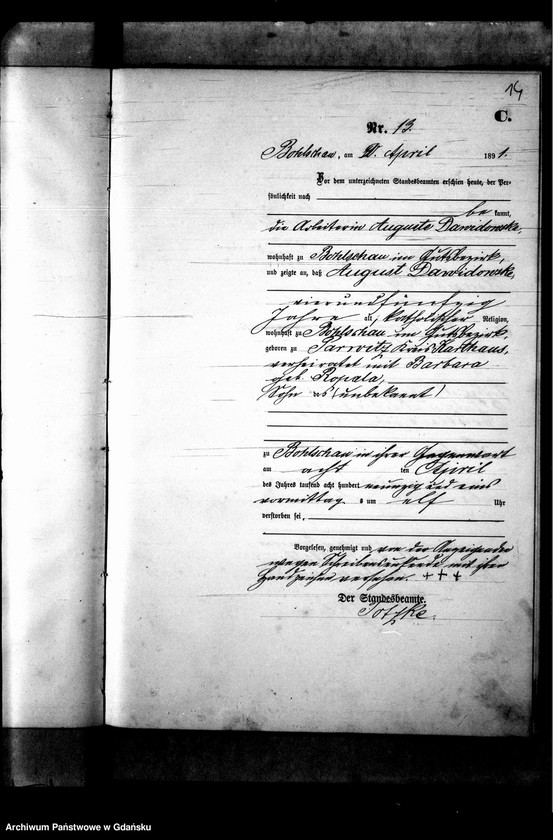 14
C.
Nr. 13.
Bohlschau, am April 1891.
Vor dem unterzeichneten Standesbeamten erschien heute, der Per-
sönlichkeit nach
be kannt,
die Arbeiterin Auguste Dawidowske,
wohnhaft zu Bohlschau im Gutsbezirk,
und zeigte an, daß August Dawidowske,
vierundfünfzig
Jahre alt, katholischer Religion,
wohnhaft zu Bohlschau im Gutsbezirk,
geboren zu Kreis Karthaus,
verheiratet mit Barbara
geb. Kopala,
Sohn (unbekannt)
zu Bohlschau in ihrer Gegenwart
am acht ten April
des Jahres tausend acht hundert neunzig und eins
vormittag s um elf Uhr
verstorben sei.
Vorgelesen, genehmigt und von der Anzeigenden
wegen mit ihrem
Handzeichen versehen. +++
Der Standesbeamte.
Archiwum Państwowe w Gdańsku